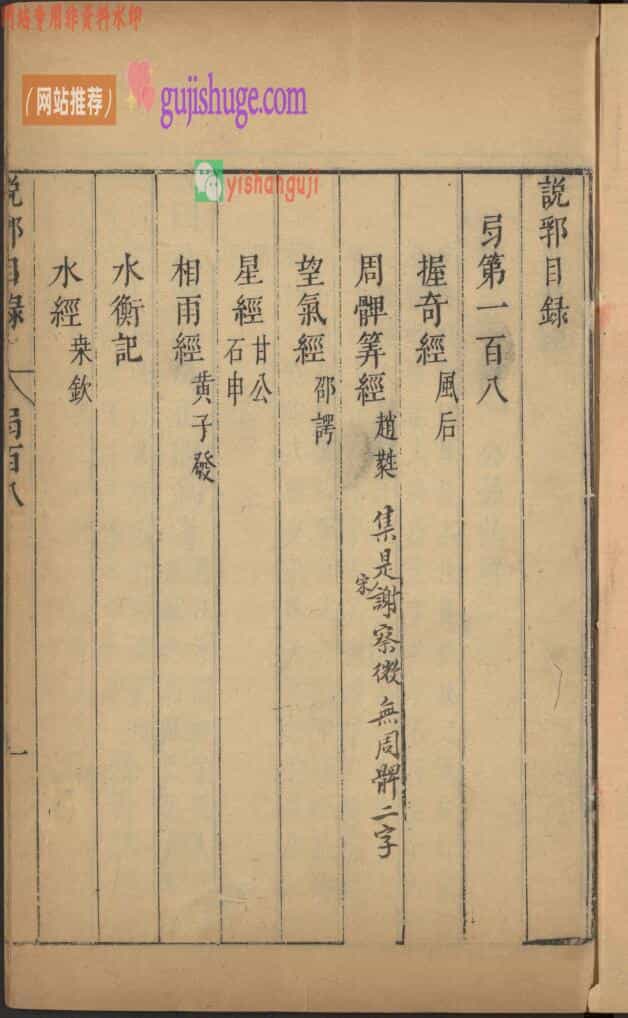 网站专用非资料水印
（网站推荐） gujishuge.com
yishanguji
說郛目録
弓第一百八
握奇經 風后
周髀筭經 趙㽔 集是宋謝察微無周髀二字
望氣經 邵諤
星經 甘公 石申
相雨經 黄子發
水衡記
水經 桒欽
說郛目録 弓百八 一